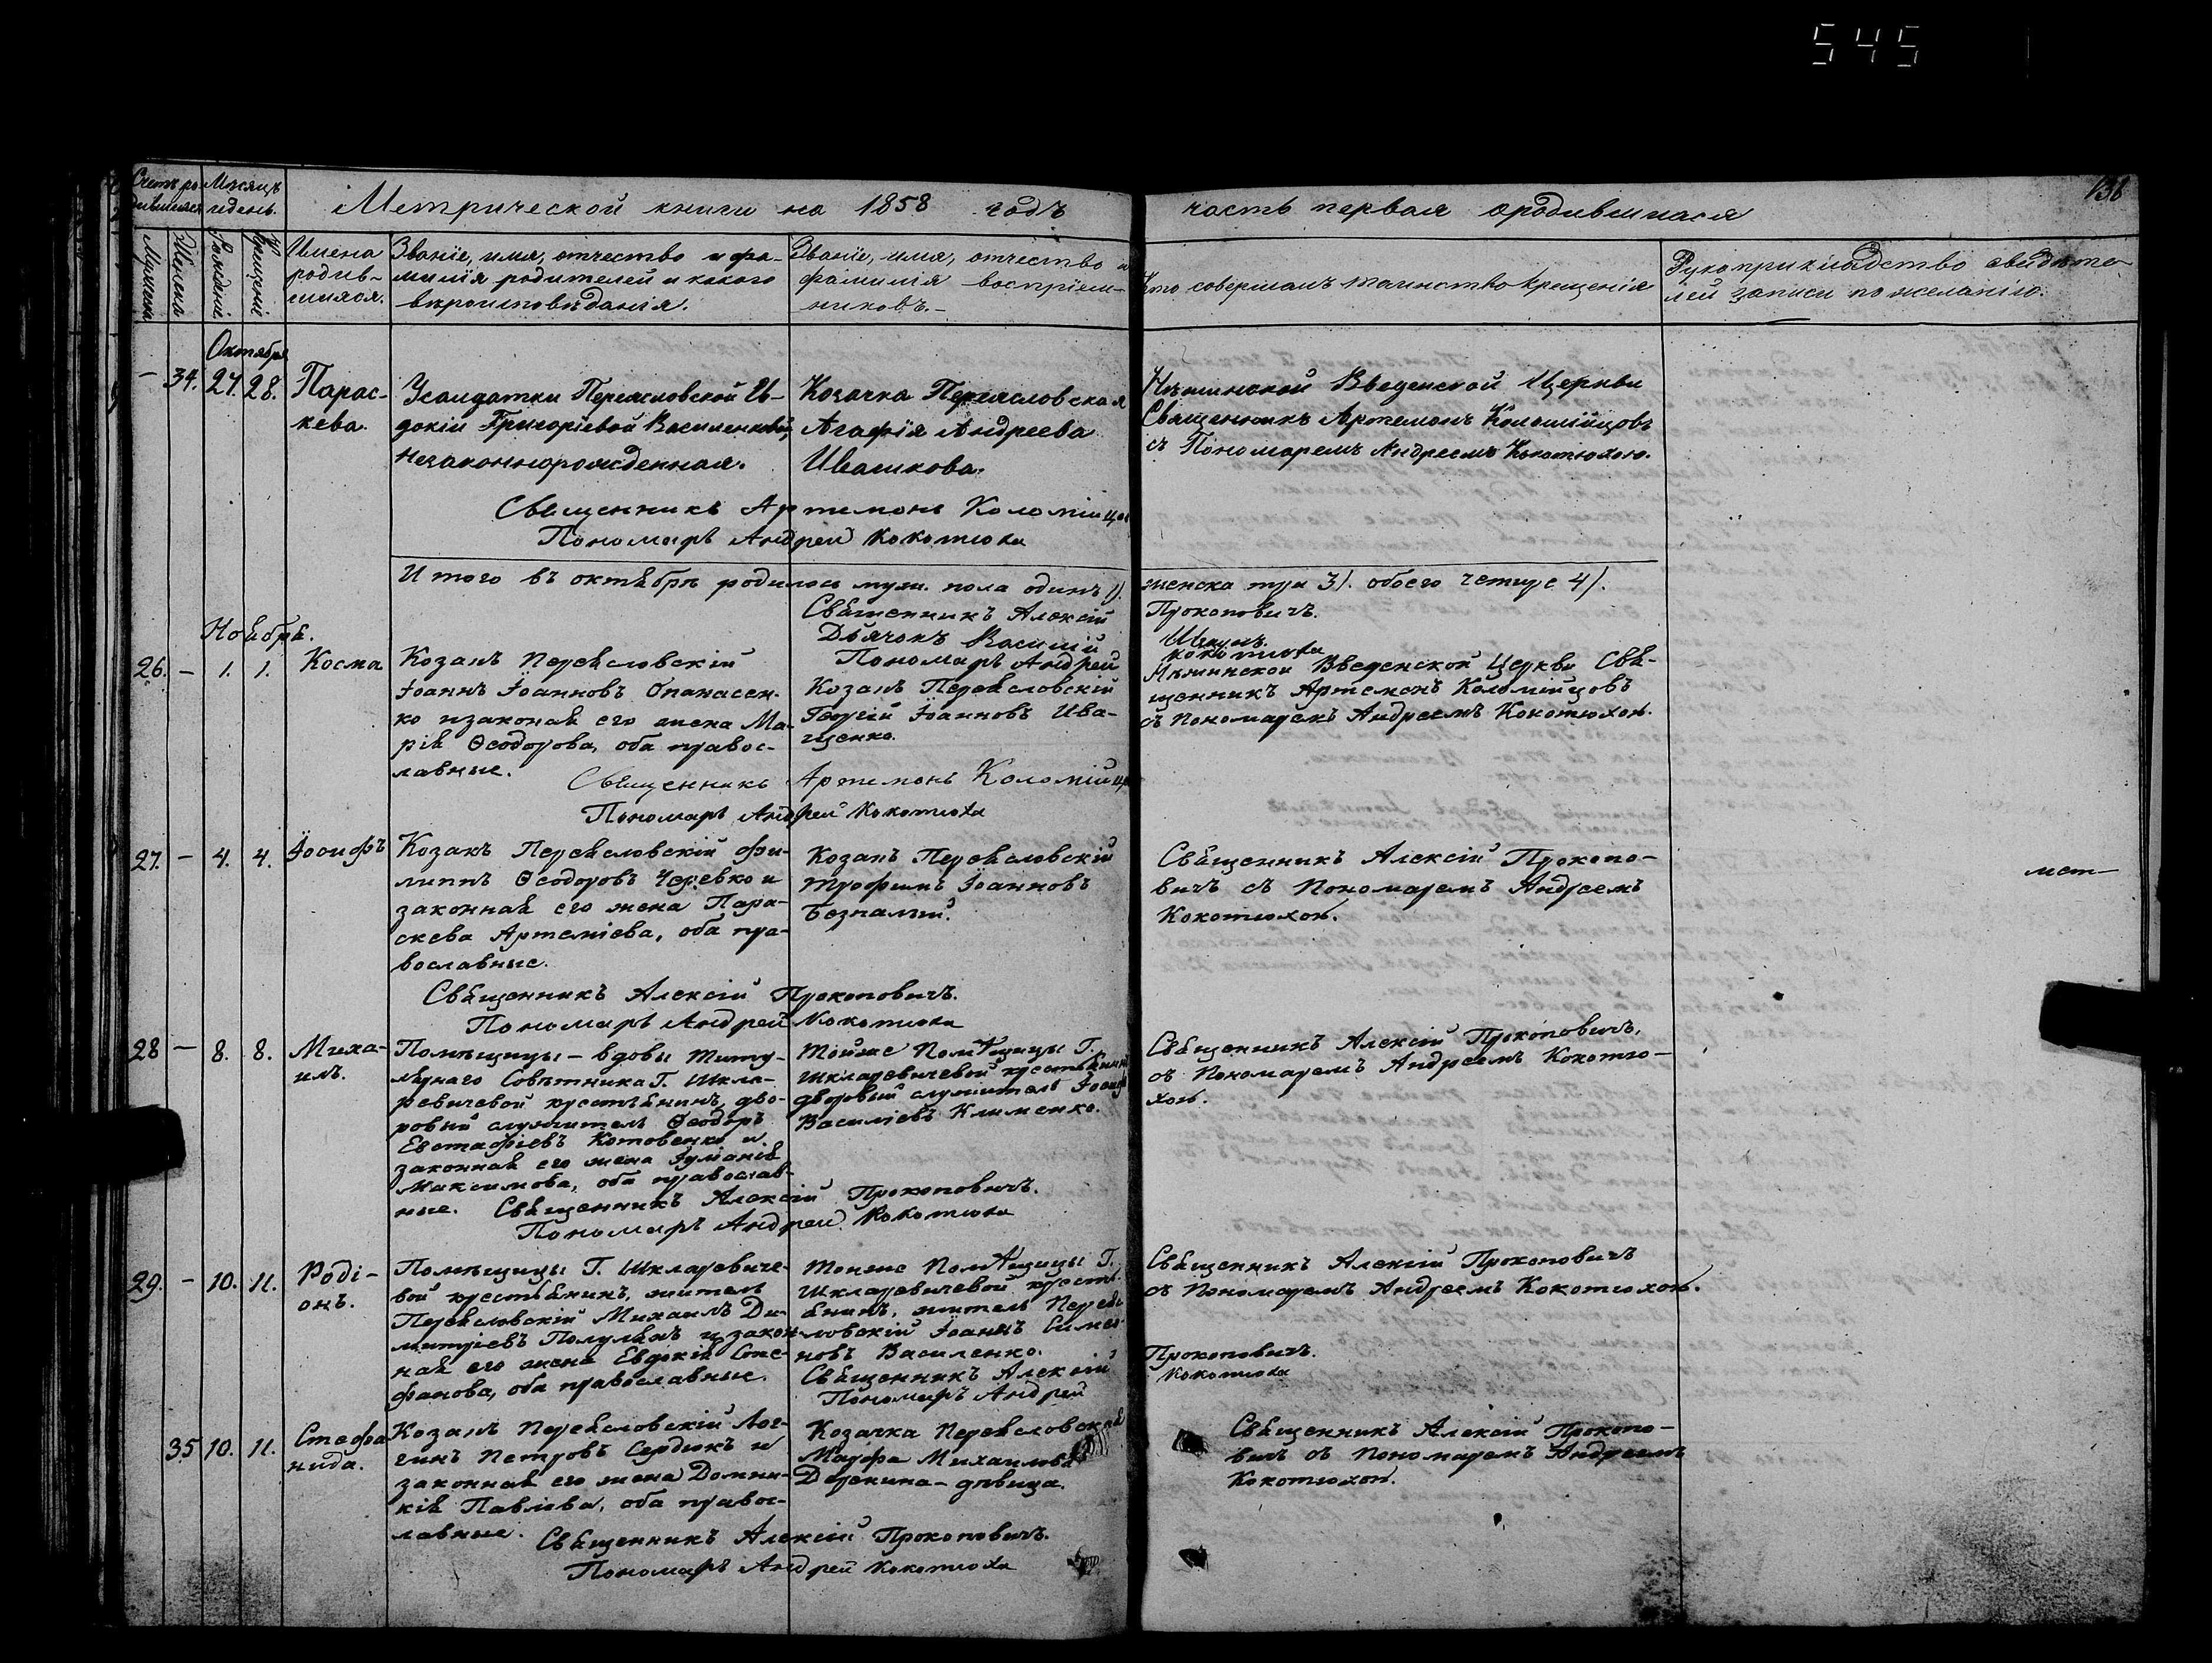 545
138
Счетъ ро- Мѣсяцъ
дившихся идень.
Метрической книги на 1858 годъ часть первая ородившихся
Мужеска
Женска
Рожденія
Крещенія
Имена
родив-
шихся.
Званіе, имя, отчество и фа-
милія родителей и какого
вѣроисповѣданія.
Званіе, имя, отчество и
фамилія воспріем-
никовъ.-
Кто совершалъ таинство крещенія
Рукоприкладство свидѣте-
лей записи по желанію.
Октября
— 34. 27. 28. Парас-
кева.
Усолдатки Переясловской Ев-
докіи Григорьевой Василенковой,
незаконнорожденная.
Козачка Переясловская
Агафія Андреева
Ивашкова.
Введенской Церкви
Священникъ Артемонъ Коломійцовъ
съ Пономаремъ Андреемъ Кокотюхою.
Священникъ Артемонъ Коломійцовъ
Пономарь Андрей Кокотюха
Итого въ октябрѣ родилось муж. пола одинъ 1). женска три 3). обоего четыре 4).
Священникъ Алексій Прокоповичъ.
Дьячокъ Василій
Пономарь Андрей Кокотюха
Ноября.
26. — 1. 1. Косма
Козакъ Переясловскій
Іоаннъ Іоанновъ Опанасен-
ко изаконая его жена Ма-
рія Ѳеодорова, оба правос-
лавные.
Козакъ Переясловскій
Георгій Іоанновъ Ива-
щенко.
Введенской Церкви Свя-
щенникъ Артемонъ Коломійцовъ
съ Пономаремъ Андреемъ Кокотюхою.
Священникъ Артемонъ Коломійцовъ
Пономарь Андрей Кокотюха
27. — 4. 4. Іосифъ
Козакъ Переясловскій Фи-
липпъ Ѳеодоровъ Черевко и
законная его жена Пара-
скева Артеміева, оба пра-
вославные.
Козакъ Переясловскій
Трофимъ Іоанновъ
Безпалый.
Священникъ Алексій Прокопо-
вичъ съ Пономаремъ Андреемъ
Кокотюхою.
Священникъ Алексій Прокоповичъ.
Пономарь Андрей Кокотюха
28 — 8. 8. Миха-
илъ.
Помѣщицы — вдовы титу-
лярнаго Совѣтника Г. Шкля-
ревичевой крестьянинъ, дво-
ровый служитель Ѳеодоръ
Евстафіевъ Котовенко и
законная его жена Іуліанія
Максимова, оба православ-
ные.
Тойже Помѣщицы Г.
Шкляревичевой крестьянинъ
дворовый служитель Іосифъ
Василіевъ Клименко.
Священникъ Алексій Прокоповичъ,
съ Пономаремъ Андреемъ Кокотю-
хою.
Священникъ Алексій Прокоповичъ.
Пономарь Андрей Кокотюха
29. — 10. 11. Роді-
онъ.
Помѣщицы Г. Шкляревиче-
вой крестьянинъ, житель
Переясловскій Михаилъ Ди-
митріевъ Полулякъ и закон-
ная его жена Евдокія Сте-
фанова, оба православные.
Тойже Помѣщицы Г.
Шкляревичевой кресть-
янинъ, житель Перея-
словскій Іоаннъ Симео-
новъ Василенко.
Священникъ Алексій Прокоповичъ
съ Пономаремъ Андреемъ Кокотюхою.
Священникъ Алексій Прокоповичъ.
Пономарь Андрей Кокотюха
35 10. 11. Стефа
нида.
Козакъ Переясловскій Лог-
гинъ Петровъ Сердюкъ и
законная его жена Домни-
кія Павлова, оба правос-
лавные.
Козачка Переясловская
Марфа Михаилова
- дѣвица.
Священникъ Алексій Прокопо-
вичъ съ Пономаремъ Андреемъ
Кокотюхою.
Священникъ Алексій Прокоповичъ.
Пономарь Андрей Кокотюха